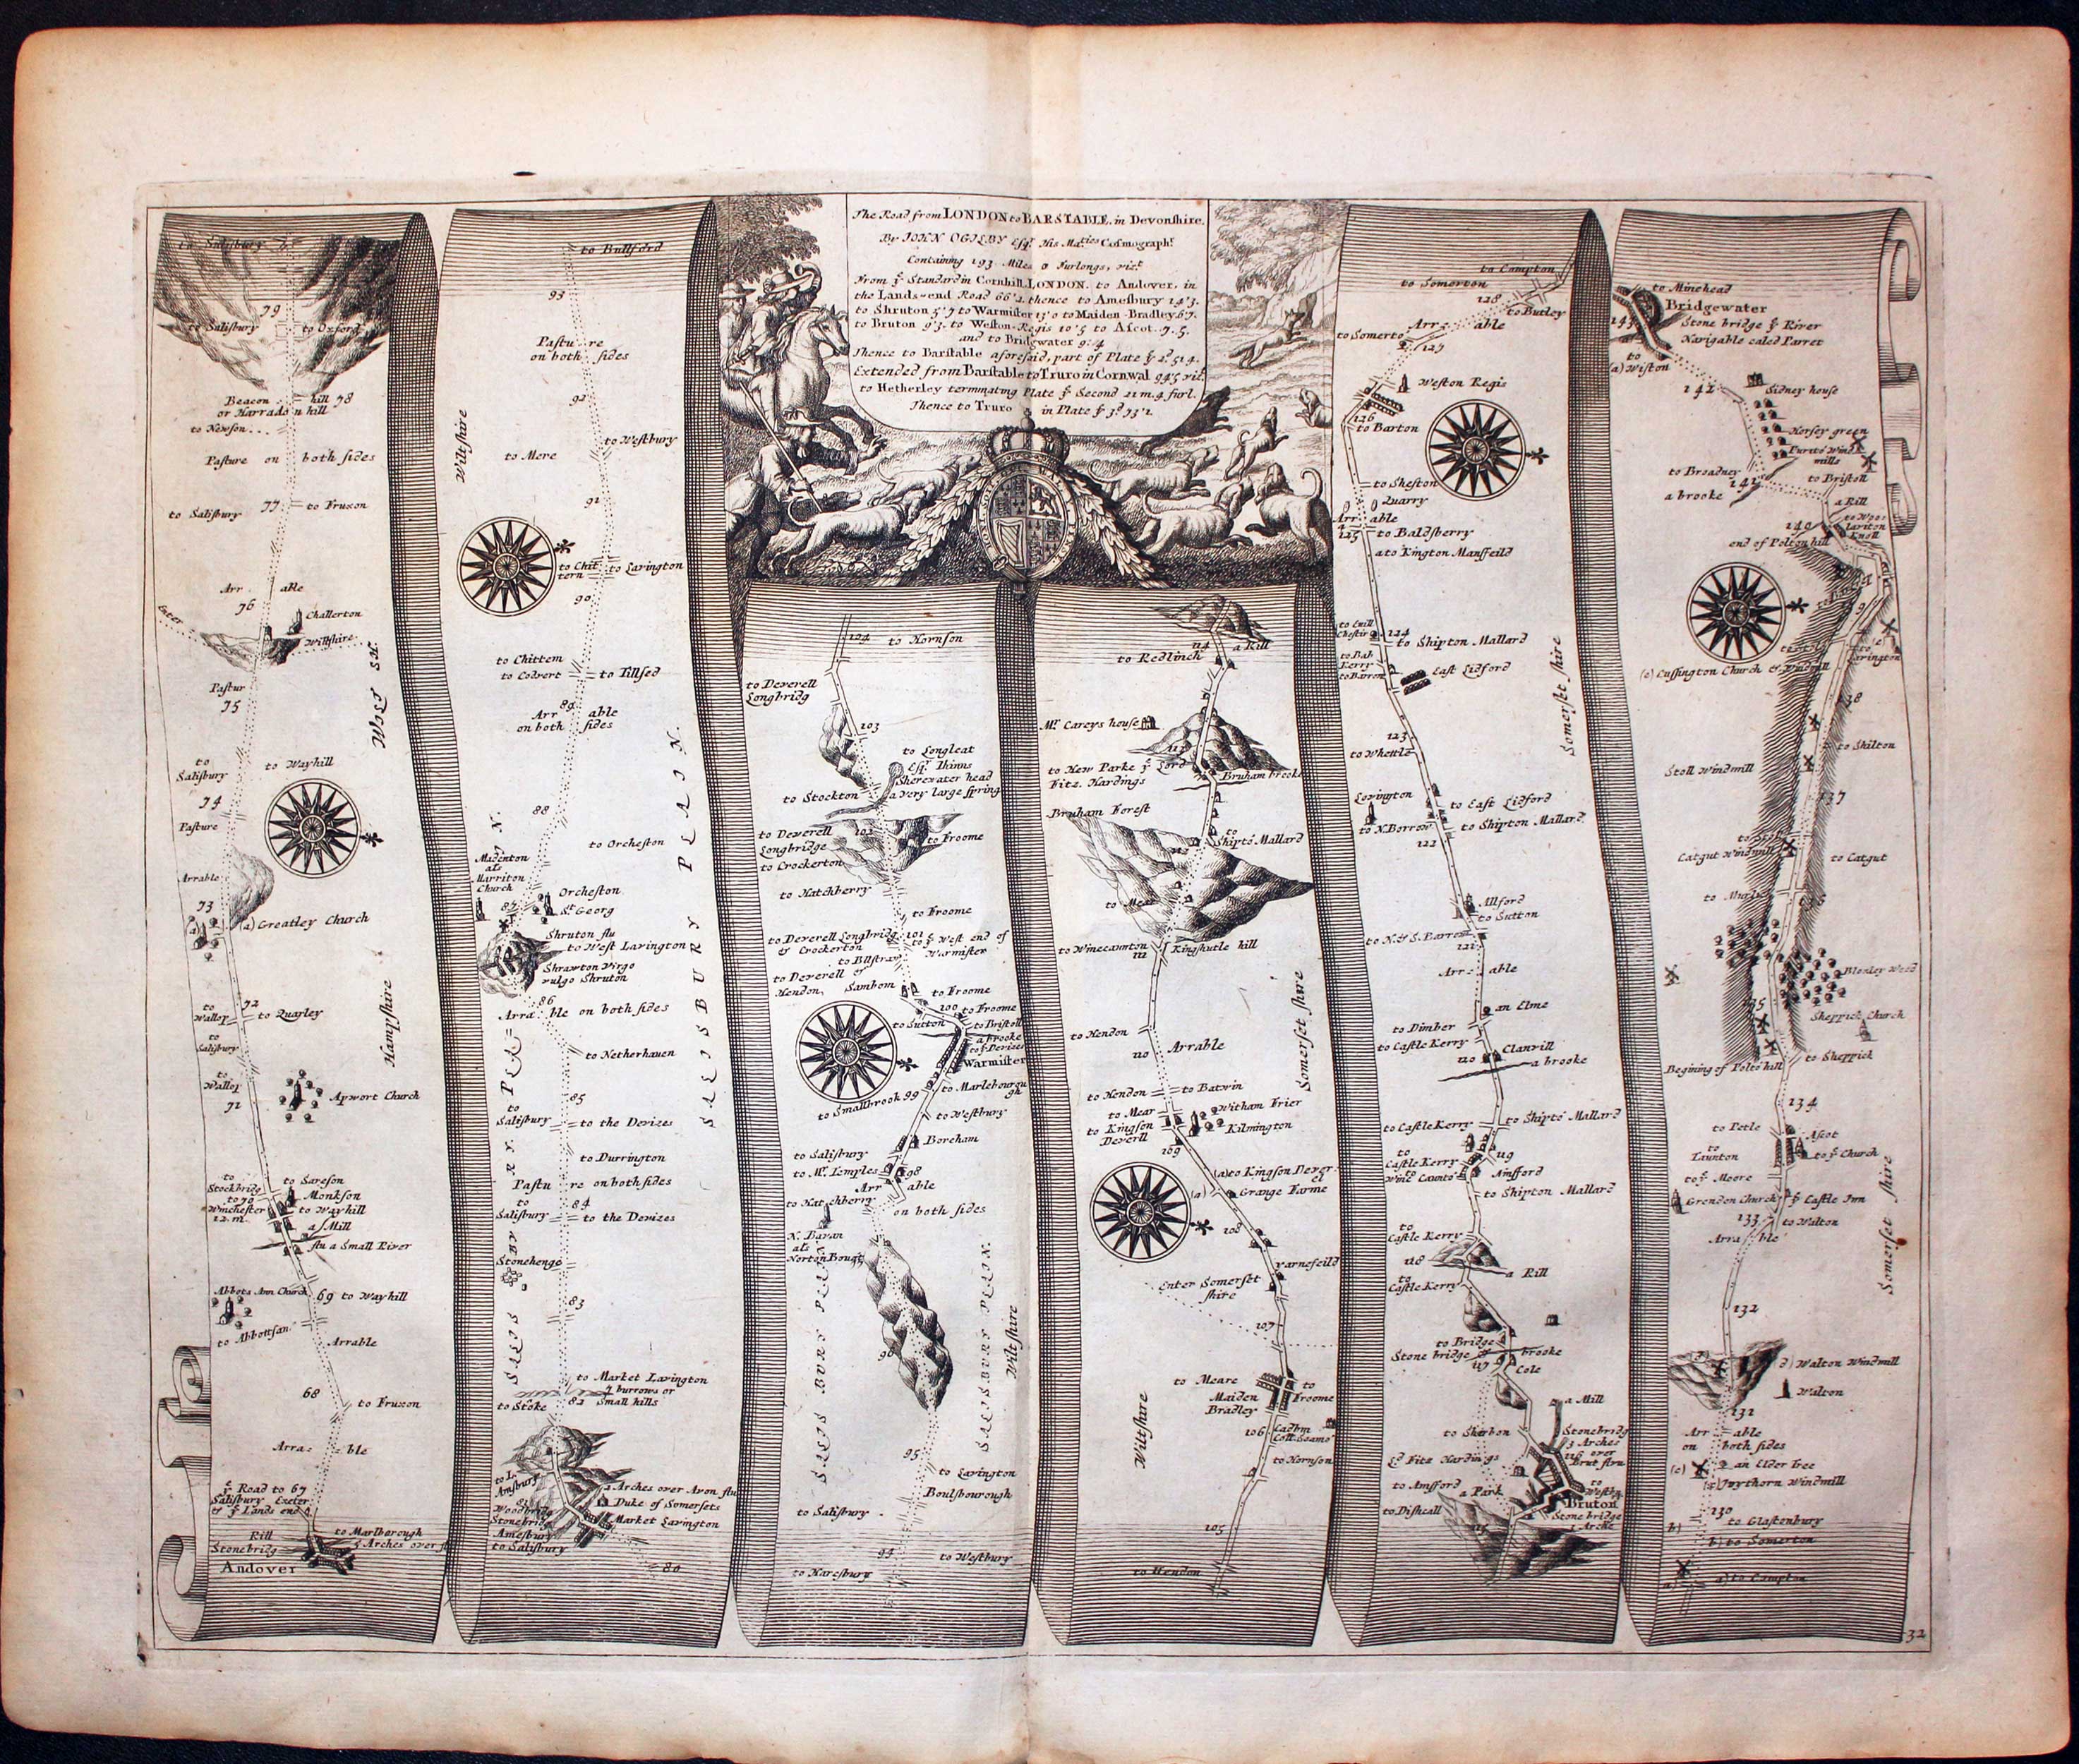 The Road from LONDON to BARSTABLE, in Devonshire.
By JOHN OGILBY Esqr. His Maties Cosmographr.
Containing 193 Miles 0 Furlongs, vizt.
From ye Standard in Cornhill LONDON. to Andover, in
the Lands-end Road 66'2. thence to Amesbury 14'3.
to Shruton 5'7 to Warmister 13'0 to Maiden-Bradley 6'7.
to Bruton 9'3. to Weston-Regis 10'5 to Ascot. 7.5.
and to Bridgwater 9:4
Thence to Barstable aforesaid, part of Plate ye 2d. 51 4.
Extended from Barstable to Truro in Cornwal 94'5 vizt.
to Hetherley terminating Plate ye Second 21 m. 4 furl.
Thence to Truro in Plate ye 3d. 73'1.
to Salisbury
79
to Salisbury to Oxford
Beacon hill 78
or Harradon hill
to Newson...
Pasture on both sides
to Salisbury 77 to Fruxon
Arr able
76
Challerton
Enter Wiltshire
WEST SH.
Pastur
75
to Salisbury
to Wayhill
74
Pasture
Arrable
73
(a) Greatley Church
72
to Wallop to Quarley
Hampshire
to Salisbury
to Wallop
71
Apwort Church
to Stockbridg
to Sareson
70
Monkson
to Winchester 12. m.
to Wayhill
a Mill
flu a Small River
Abbots Ann Church
69 to Wayhill
to Abbottsan
Arrable
68
to Fruxon
Arra: ble
ye Road to 67
Salisbury Exeter
& ye Lands end
Rill to Marlborough
Stonebridg 5 Arches over
Andover
to Bullford
93
Pastu re
on both sides
92
Wiltshire
to Westbury
to Mere
91
to Chittern to Lavington
90
to Chittem
to Codvert to Tillsed
89
Arr able
on both sides
88
to Orcheston
SALISBURY PLAIN.
Madinton als Marriton Church
Orcheston
87 St. Georg
Shruton flu
to West Lavington
Shrawton Virgo
vulgo Shruton
86
Arra: ble on both sides
to Netherhaven
85
to Salisbury to the Devizes
to Durrington
Pastu re on both sides
84
to Salisbury to the Devizes
Stonehenge
83
SALISBURY PLAIN.
to Market Lavington
7 burrows or
82 Small hills
to Stoke
to L. Amsbury
Arches over Avon flu
Duke of Somersets
Market Lavington
Stonebridg
Amesbury
to Salisbury
80
104
to Hornson
to Deverell
Longbridg
103
to Longleat
Esqr. Thinns
Sherewater head
a very large spring
to Stockton
102
to Deverell
Longbridge
to Froome
to Crockerton
to Hatchberry
to Froome
to Deverell Longbridg 101
or Crockerton
to ye West end of
Warmister
to Deverell or
Hendon
Sambom
to Froome
100 to Froome
to Sutton
to Bristoll
a brooke
to ye Devizes
Warmister
to Marlebourough
to Smallbrook 99
to Westbury
Boreham
to Salisbury
to Mr. Temples 98
Arr able
to Hatchberry
on both sides
N. Bavan
als
Norton Bougt
96
SALISBURY PLAIN.
SALISBURY PLAIN.
Wiltshire
95
to Lavington
Boulsbourough
to Salisbury
94
to Westbury
to Haresbury
114
a Rill
to Redlinch
Mr. Careys house
113
to New Parke ye Lord
Fitz. Hardings
Bruham brooke
Bruham Forest
to Shipto Mallard
112
to Mear
to Winecawnton
Kingshutle hill
111
to Hendon
110
Arrable
Somerset shire
to Hendon to Batwin
to Mear
Witham Frier
to Kingson Deverll
Kilmington
109
(a) to Kingson Deverel
(a)
Grange Farme
108
Yarnefeild
Enter Somerset
shire
107
to Meare
Maiden
Bradley
to Froome
106
Wiltshire
to Hornson
105
to Hendon
to Compton
to Somerton
128
to Butley
Arr: able
to Somerto
127
Weston Regis
126
to Barton
to Sheston
Quarry
Arr: able
125
to Baldsberry
a to Kington Mansfeild
124
to Shipton Mallard
to Bab Kerry
to Barron
East Lidford
Somerset shire
123
to Whettle
Lovington
to East Lidford
to N. Borrow
to Shipton Mallard
122
Allford
to Sutton
to N. & S. Barrow
121
Arr: able
an Elme
to Dimber
to Castle Kerry
120 Clanvill
a brooke
to Castle Kerry
to Shipto Mallard
119
to Castle Kerry
Wine Cawnto
Amsford
to Shipton Mallard
to Castle Kerry
118
a Rill
to Castle Kerry
to Bridge
Stone bridge brooke
117 Cole
a Mill
to Sherbon
Stonebridg
3 Arches
116 over
Brut flu
Ld Fitz Hardings
to Amsford
a Park
to Westby.
Bruton
to Dishcall
Stone bridge
1 Arche
115
to Minehead
Bridgewater
143
Stone bridge ye River
Navigable caled Parret
to
(a) Wiston
142
Sidney house
Horsey green
Purito Wind
mills
to Broadney
141 to Bristoll
a brooke
a Rill
140
to Woolaviton
Knoll
end of Poltonhill
139
to Lavington
(e) Cussington Church & Windmill
138
to Shilton
Stoll Windmill
137
Catgut Windmill
to Catgut
136
to Murlin
Bloxley Wood
135
Sheppick Church
Begining of Polto hill
to Sheppick
134
to Petle
Ascot
to Taunton
to ye Church
to ye Moore
Grendon Church ye Castle Inn
133 to Walton
Arra: ble
132
Somerset shire
d) Walton Windmill
Walton
131
Arr: able
on both sides
(c) an Elder Tree
(c) Ivythorn Windmill
130
b) to Glastenbury
b) to Somerton
a) a) to Compton
32